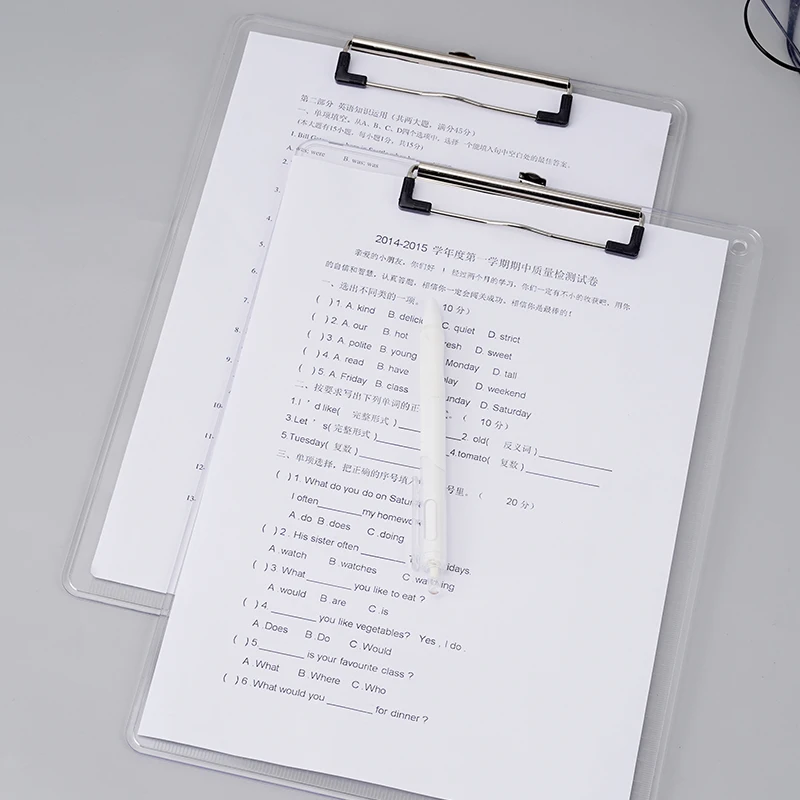 第二部分 英语知识运用 (共两大题，满分45分)
一、单项填空。从A、B、C、D四个选项中，选择一个能填入句中空白处的最佳答案。
(本大题有15小题，每小题1分，共15分)
1. Bill
A. was; were B. was; was
2.
3.
4.
5.
6.
7.
8.
9.
10.
11.
12.
13.
2014-2015 学年度第一学期期中质量检测试卷
亲爱的小朋友，你们好 ！ 经过两个月的学习，你们一定有不小的收获吧，用你
的自信和智慧，认真答题，相信你一定会闯关成功，相信你是最棒的！
一、选出不同类的一项。 10 分）
( ) 1. A. kind B. C. quiet D. strict
( ) 2. A. our B. hot D. sweet
( ) 3 A. polite B. young Monday D. tall
( ) 4. A. read B. have D. weekend
( ) 5. A. Friday B. class D. Saturday
二、按要求写出下列单词的正 （ 10 分）
1.I ' d like( 完整形式 )________2. old( 反义词 )________
3.Let ' s( 完整形式 )________4.tomato( 复数 )________
5.Tuesday( 复数 )________
三、单项选择，把正确的序号填 号里。（ 20 分）
( ) 1. What do you do on
I often________my
A .do B .does C .doing
( ) 2 . His sister often ________
A .watch B .watches C
( ) 3 . What________ you like to eat ?
A .would B .are C .is
( ) 4 ________ you like vegetables? Yes , I do .
A .Does B .Do C .Would
( ) 5.________ is your favourite class ?
A .What B .Where C .Who
( ) 6 .What would you ________ for dinner ?